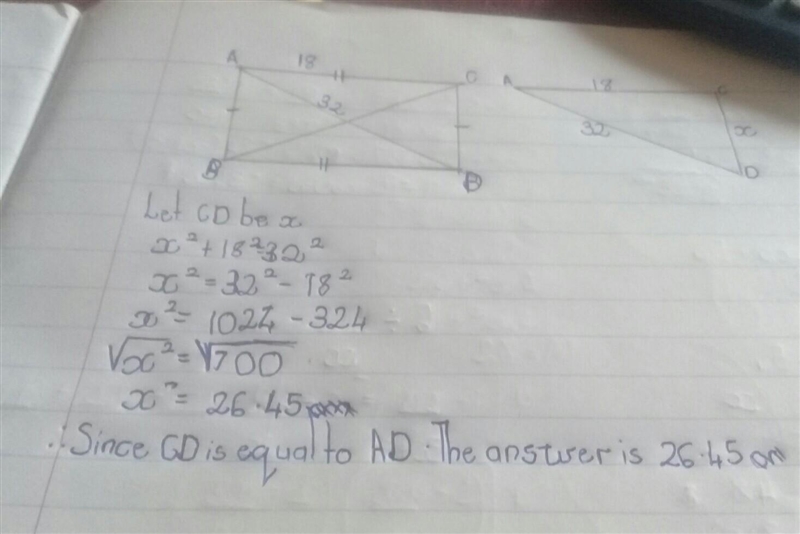 A 18 C
32
B D
A 18 C
32 x
D
Let CD be x
x² + 18² = 32²
x² = 32² - 18²
x² = 1024 - 324
√x² = √700
x = 26.45
∴ Since CD is equal to AD. The answer is 26.45 cm